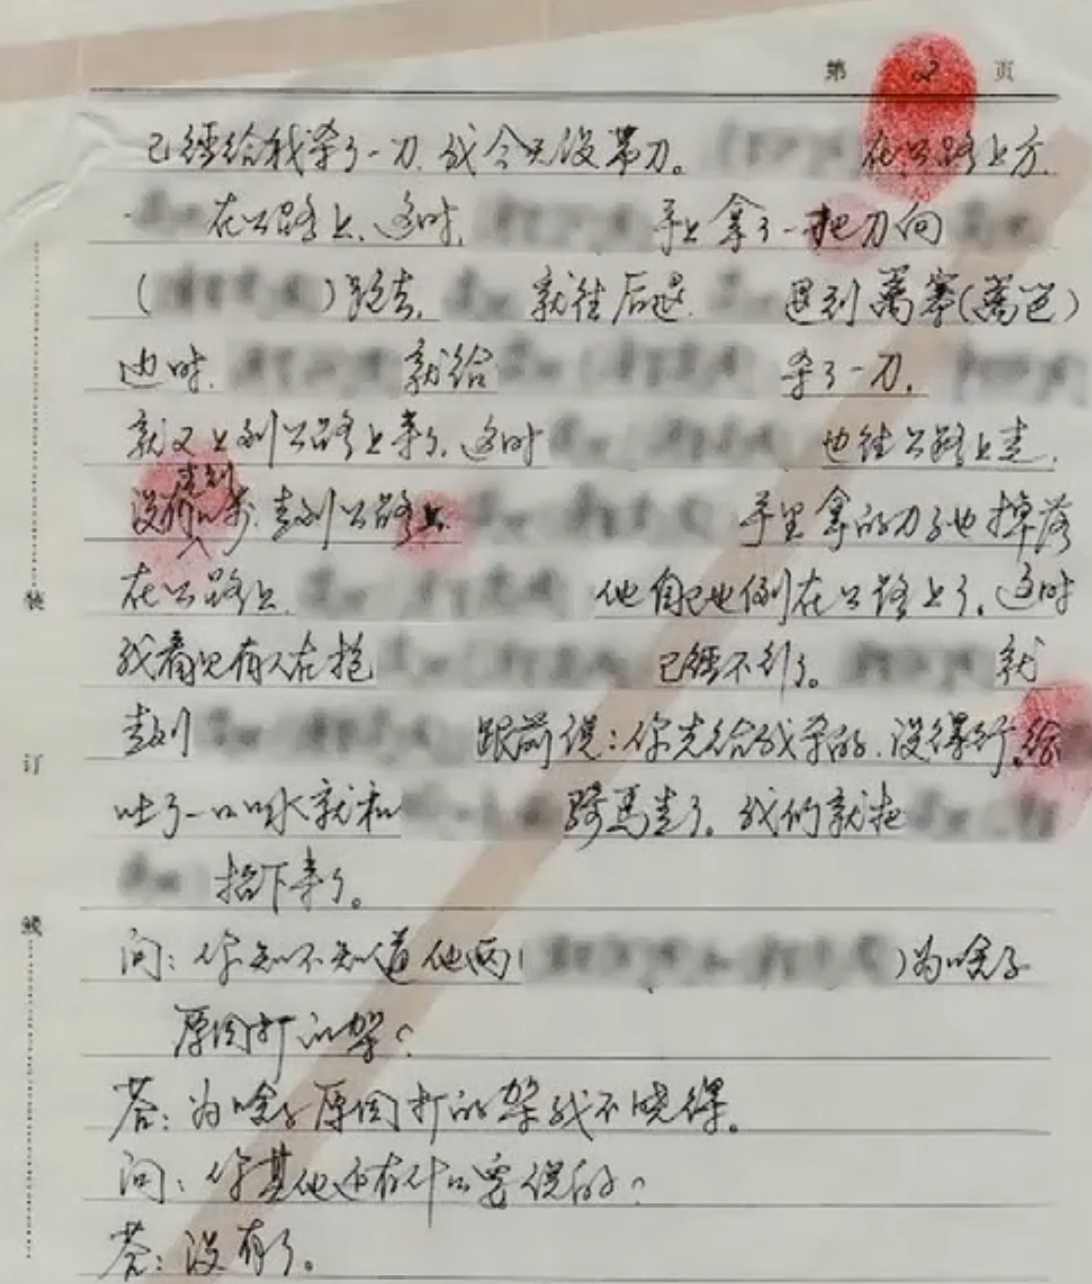 第 2 页
已经给我杀了一刀,我今天没带刀。 在公路上方,
在公路上,这时, 手上拿了一把刀向
( )跑去, 就往后退, 退到蒿寨(蒿笆)
边时, 就给 杀了一刀,
就又上到公路上来了,这时 也往公路上走,
没有几步,走到公路上 手里拿的刀子也掉落
走到
在公路上, 他自己也倒在公路上了,这时
我看见有人在抱 已经不行了。 就
走到 跟前说:你先给我杀的,没得行。
吐了一口口水就和 骑马走了。我们就把
抬下来了。
问:你知不知道他两( )为啥子
原因打的架?
答:为啥子原因打的架我不晓得。
问:你其他还有什么要说的?
答:没有了。
装
订
线